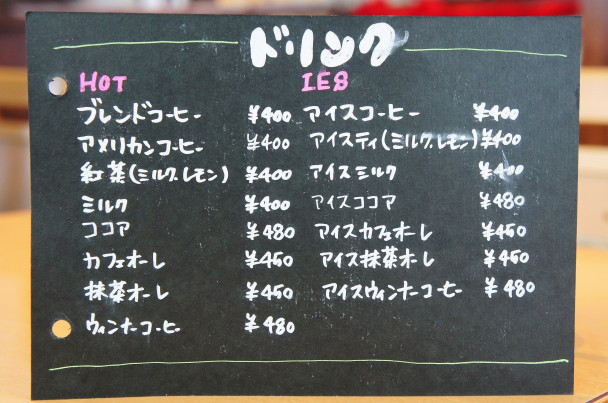 ドリンク
HOT
ブレンドコーヒー ¥400
アメリカンコーヒー ¥400
紅茶(ミルク.レモン) ¥400
ミルク ¥400
ココア ¥480
カフェオーレ ¥450
抹茶オーレ ¥450
ウィンナーコーヒー ¥480
IES
アイスコーヒー ¥400
アイスティ(ミルク.レモン) ¥400
アイスミルク ¥400
アイスココア ¥480
アイスカフェオーレ ¥450
アイス抹茶オーレ ¥450
アイスウィンナーコーヒー ¥480